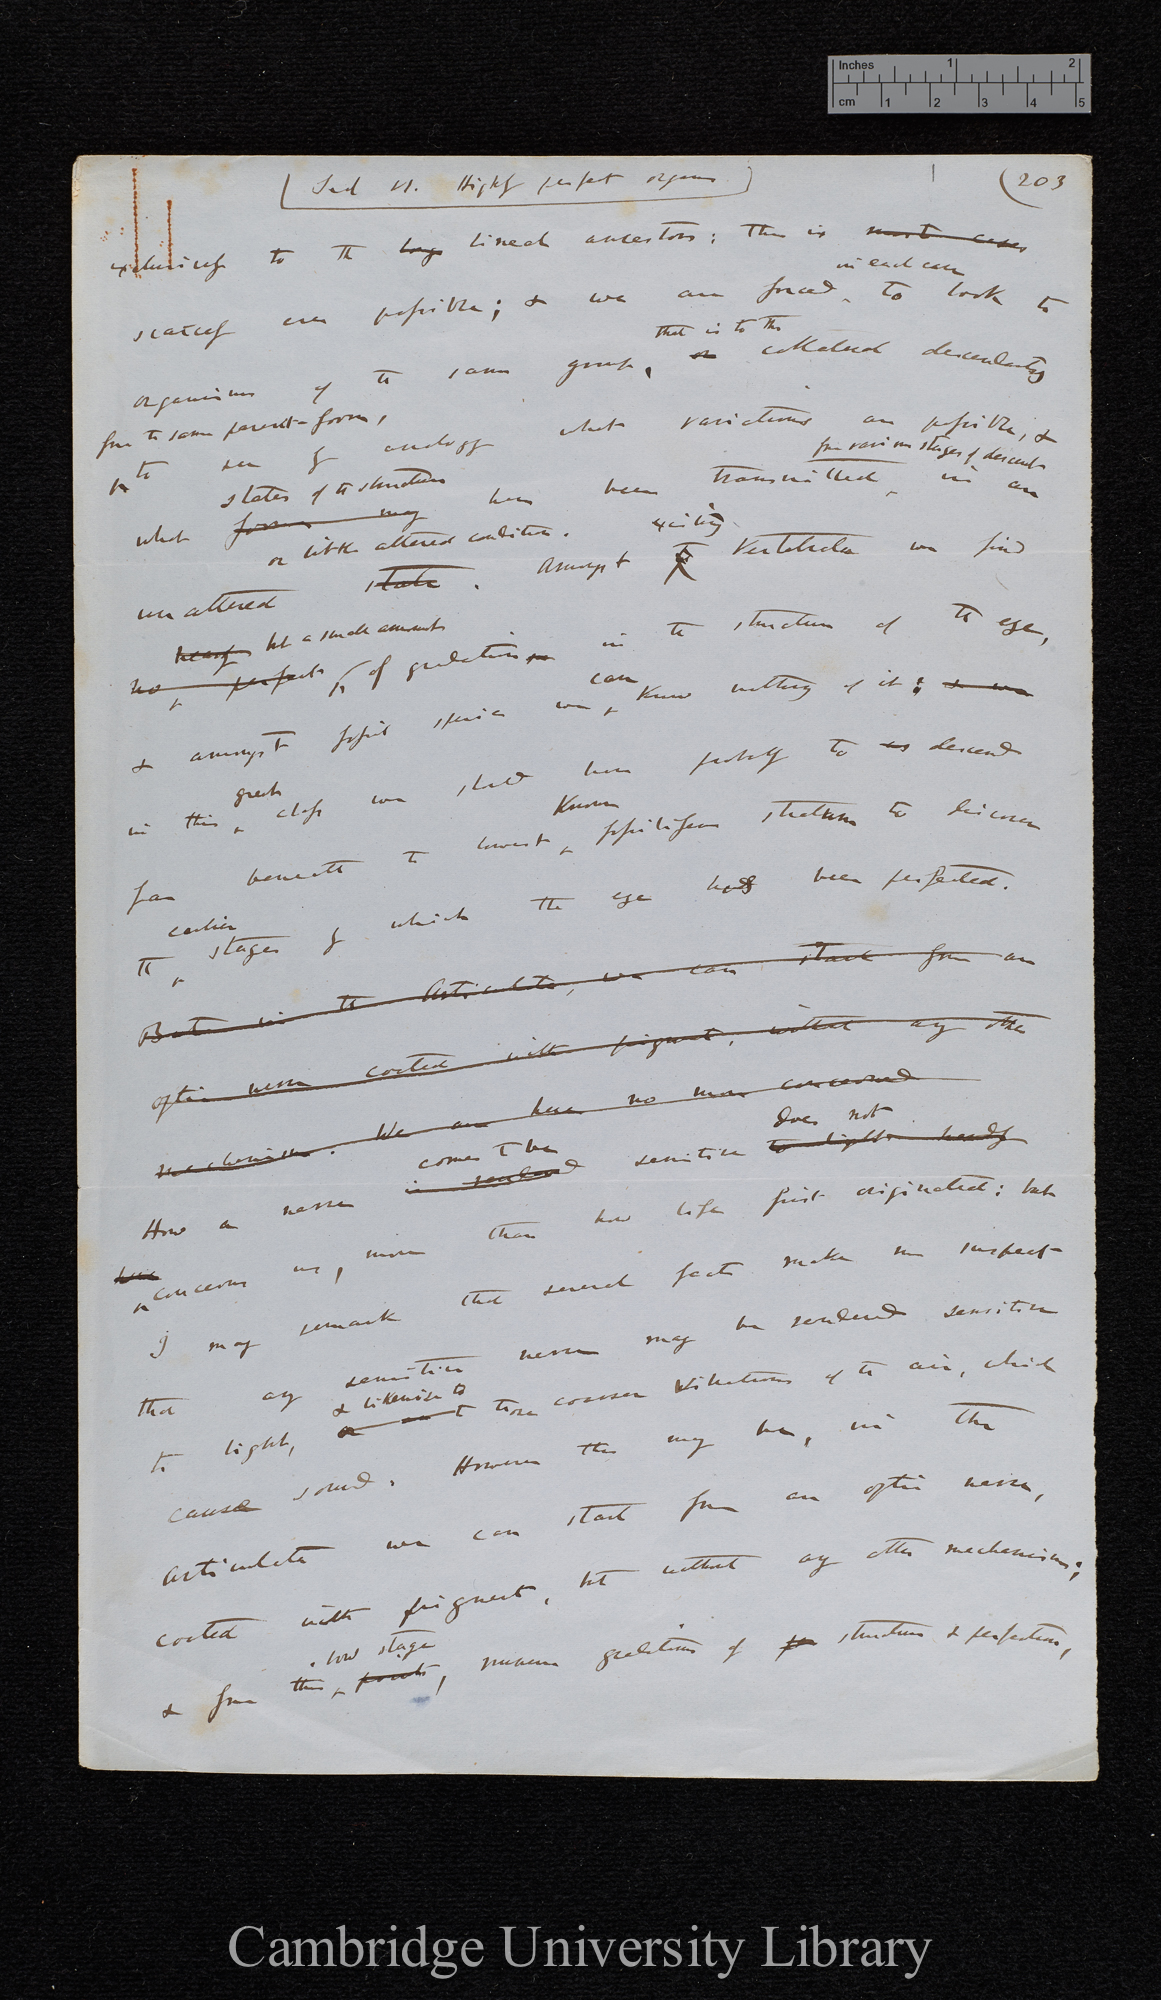 Inches 1 2
cm 1 2 3 4 5
Sect VI. Highly perfect organs
(203
exclusively to the long lineal ancestors: this is most cases
in each case
scarcely ever possible; & we are forced to look to
that is to the
organisms of the same group, or collateral descendants
from the same parent-form,
to see by analogy what variations are possible, &
from various stages of descent
states of the structure
what forms may have been transmitted, in an
or little altered condition. existing
unaltered state. Amongst the Vertebrata we find
nearly but a small amount
no perfect of gradation in the structure of the eye,
can
& amongst fossil species we know nothing of it; & we
great
in this class we should have probably to descend
Known
far beneath the lowest fossiliferous stratum to discover
earlier
the stages by which the eye has been perfected.
But in the Articulata, we can start from an
optic nerve coated with pigment, without any other
mechanism. We are here no more concerned
comes to be does not
How a nerve is rendered sensitive to light hardly
concerns us, more than how life first originated; but
I may remark that several facts make me suspect
that any sensitive nerve may be rendered sensitive
& likewise to
to light, those coarser vibrations of the air, which
cause sound. However this may be, in the
Articulata we can start from an optic nerve,
coated with pigment, but without any other mechanism;
low stage
& from this point, numerous gradations of structure & perfection,
Cambridge University Library